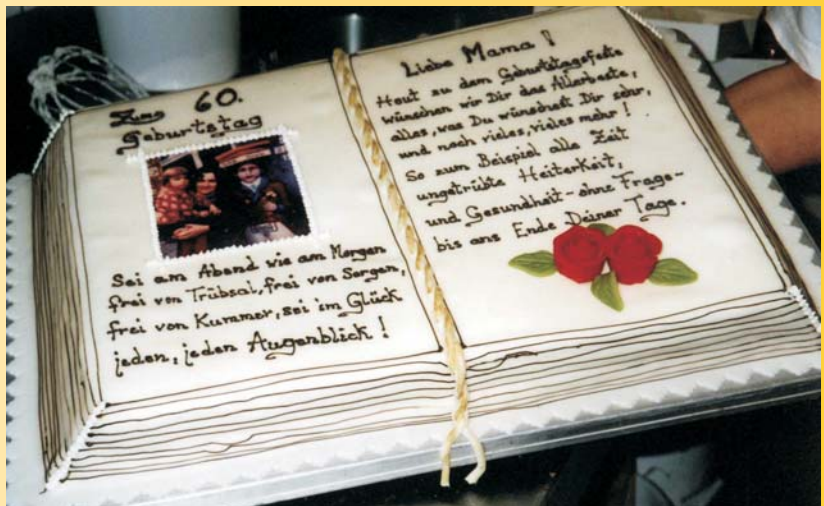 Zum 60.
Geburtstag
Sei am Abend wie am Morgen
frei von Trübsal, frei von Sorgen,
frei von Kummer, sei im Glück
jeden, jeden Augenblick!
Liebe Mama!
Heut zu dem Geburtstagsfeste
wünschen wir Dir das Allerbeste,
alles, was Du wünschest Dir sehr,
und noch vieles, vieles mehr!
So zum Beispiel alle Zeit
ungetrübte Heiterkeit,
und Gesundheit - ohne Frage -
bis ans Ende Deiner Tage.